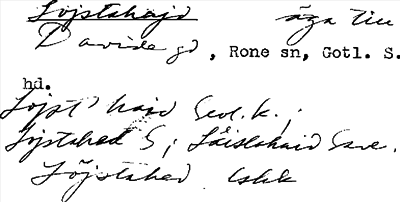 Lojstahajd äga till
Davide gd, Rone sn, Gotl. S.
hd.
Lojst' haid Geol. k.;
Lojstahed S; Låistahaid Save.
Löjstahed